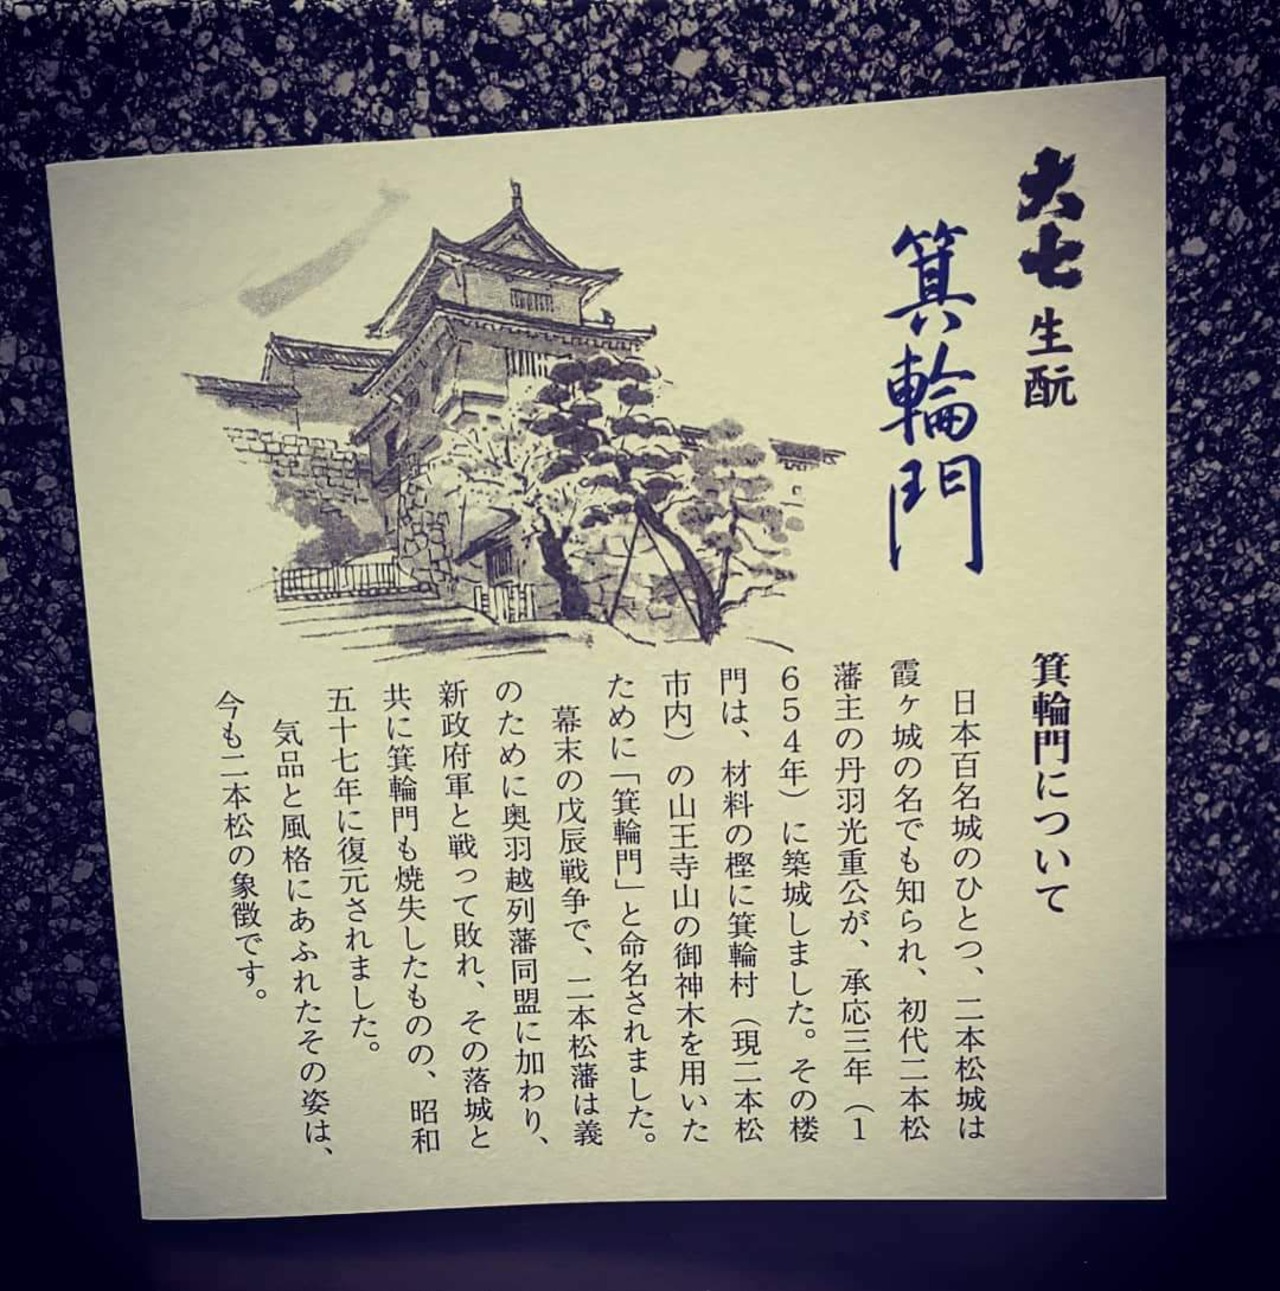 大七 生酛
箕輪門
箕輪門について
日本百名城のひとつ、二本松城は
霞ヶ城の名でも知られ、初代二本松
藩主の丹羽光重公が、承応三年（1
654年）に築城しました。その楼
門は、材料の樫に箕輪村（現二本松
市内）の山王寺山の御神木を用いた
ために「箕輪門」と命名されました。
幕末の戊辰戦争で、二本松藩は義
のために奥羽越列藩同盟に加わり、
新政府軍と戦って敗れ、その落城と
共に箕輪門も焼失したものの、昭和
五十七年に復元されました。
気品と風格にあふれたその姿は、
今も二本松の象徴です。